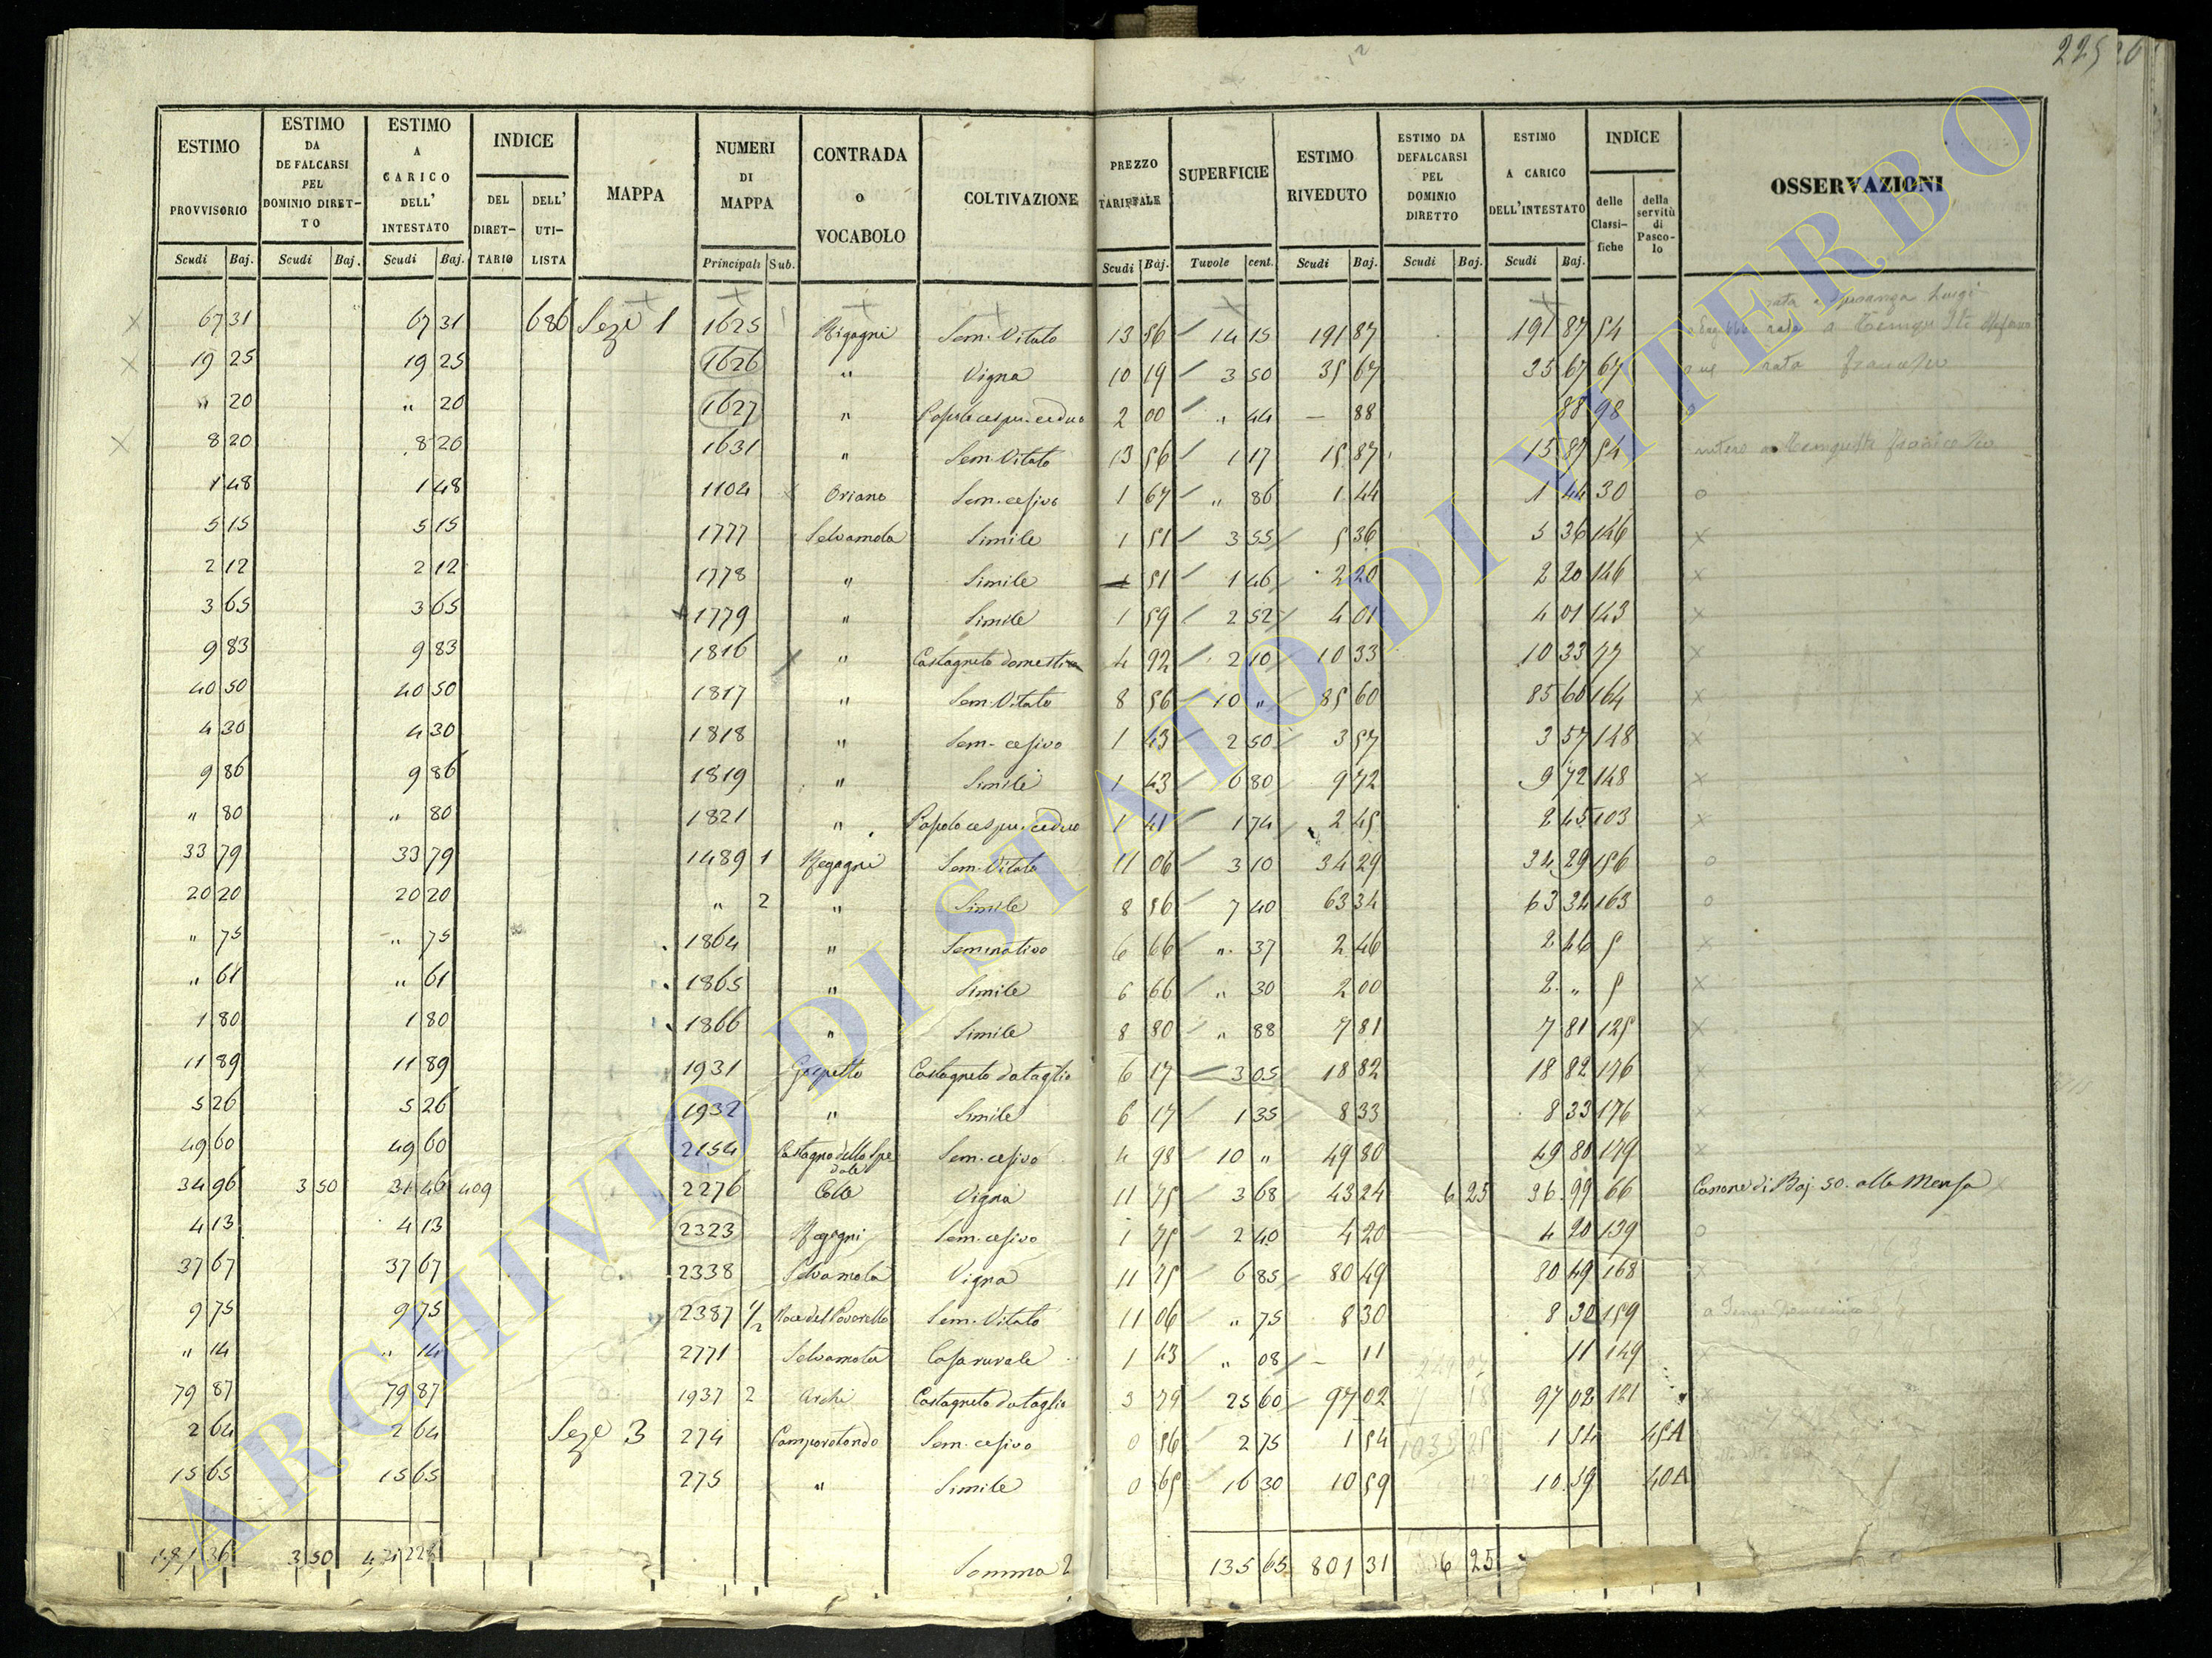 225
ESTIMO PROVVISORIO Scudi Baj. | ESTIMO DA DEFALCARSI PEL DOMINIO DIRETTO Scudi Baj. | ESTIMO A CARICO DELL' INTESTATO Scudi Baj. | INDICE DEL DIRETTARIO | DELL' UTILISTA | MAPPA | NUMERI DI MAPPA Principali Sub. | CONTRADA o VOCABOLO | COLTIVAZIONE | PREZZO TARIFFALE Scudi Baj. | SUPERFICIE Tavole cent. | ESTIMO RIVEDUTO Scudi Baj. | ESTIMO DA DEFALCARSI PEL DOMINIO DIRETTO Scudi Baj. | ESTIMO A CARICO DELL'INTESTATO Scudi Baj. | INDICE delle Classifiche | della servitù di Pascolo | OSSERVAZIONI
67 31 67 31 686 Seze 1 1625 Rigagni Sem. Vitato 13 56 14 15 191 87 191 87 54
19 25 19 25 1626 " Vigna 10 19 3 50 35 67 35 67 67
" 20 " 20 1627 " 2 00 " 44 — 88 88 98
8 20 8 20 1631 " Sem. Vitato 13 56 1 17 15 87 15 87 54
1 48 1 48 1104 Oriano Sem. cesivo 1 67 " 86 1 44 1 44 30 o
5 15 5 15 1777 Selvamola Simile 1 51 3 55 5 36 5 36 146 x
2 12 2 12 1778 " Simile 1 51 1 46 2 20 2 20 146 x
3 65 3 65 1779 " Simile 1 59 2 52 4 01 4 01 143 x
9 83 9 83 1816 " Castagneto domestico 4 92 2 10 10 33 10 33 77 x
40 50 40 50 1817 " Sem. Vitato 8 56 10 " 85 60 85 60 164 x
4 30 4 30 1818 " Sem. cesivo 1 43 2 50 3 57 3 57 148 x
9 86 9 86 1819 " Simile 1 43 6 80 9 72 9 72 148 x
" 80 " 80 1821 " 1 41 1 74 2 45 2 45 103 x
33 79 33 79 1489 1 Regagni Sem. Vitato 11 06 3 10 34 29 34 29 156 o
20 20 20 20 " 2 " Simile 8 56 7 40 63 34 63 34 163 o
" 75 " 75 1864 " Seminativo 6 66 " 37 2 46 2 46 5 x
" 61 " 61 1865 " Simile 6 66 " 30 2 00 2 " 5 x
1 80 1 80 1866 " Simile 8 80 " 88 7 81 7 81 125 x
11 89 11 89 1931 Castagneto dataglio 6 17 3 05 18 82 18 82 176 x
5 26 5 26 1932 " Simile 6 17 1 35 8 33 8 33 176 x
49 60 49 60 2154 Castagno dello Spedale Sem. cesivo 4 98 10 " 49 80 49 80 179 x
34 96 3 50 31 46 409 2276 Cola Vigna 11 75 3 68 43 24 6 25 36 99 66 Canone di Baj. 50. alla Mensa
4 13 4 13 2323 Regagni Sem. cesivo 1 75 2 40 4 20 4 20 139 o
37 67 37 67 2338 Selvamola Vigna 11 75 6 85 80 49 80 49 168 x
9 75 9 75 2387 1/2 Sem. Vitato 11 06 " 75 8 30 8 30 159
" 14 " 14 2771 Selvamola Casa rurale 1 43 " 08 — 11 11 149 x
79 87 79 87 1937 2 Archi Castagneto dataglio 3 79 25 60 97 02 97 02 121 x
2 64 2 64 Seze 3 274 Camporotondo Sem. cesivo 0 56 2 75 1 54 1 54 45A
15 65 15 65 275 " Simile 0 65 16 30 10 59 10 59 40A
3 50 Somma 135 65 801 31 6 25
ARCHIVIO DI STATO DI VITERBO